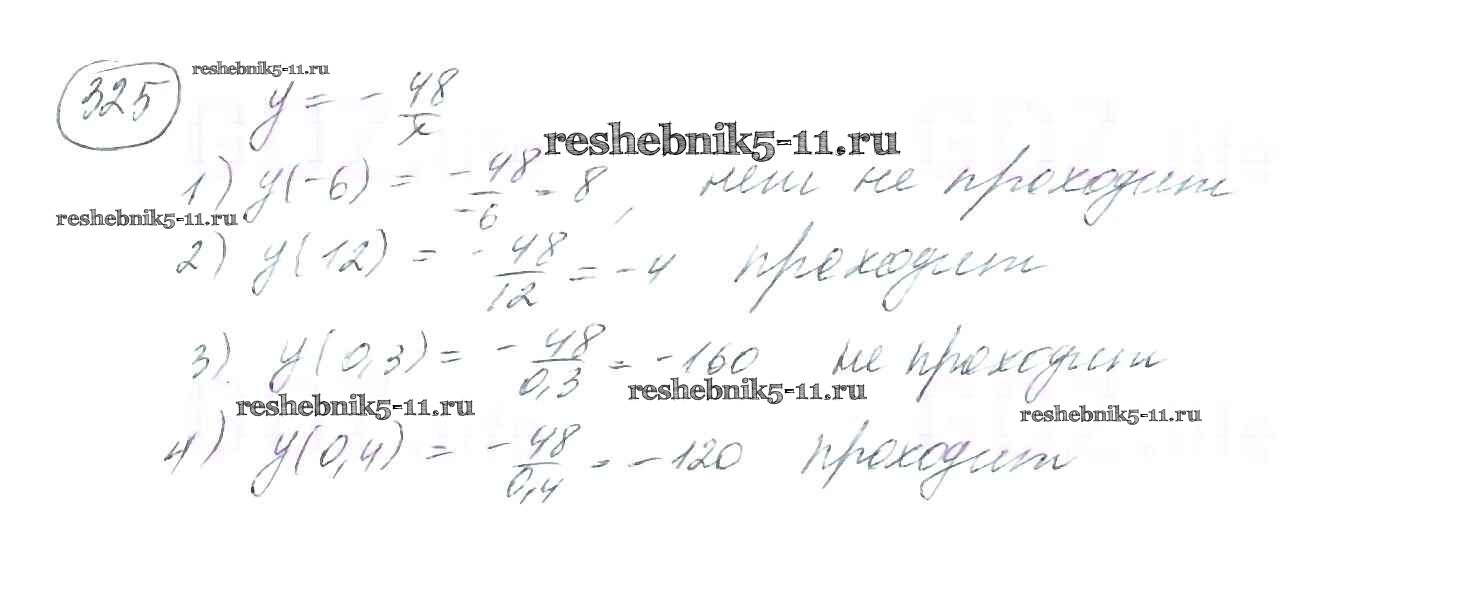 reshebnik5-11.ru
325 y = - 48/x
reshebnik5-11.ru
1) y(-6) = -48/-6 = 8, не проходит
reshebnik5-11.ru
2) y(12) = -48/12 = -4 проходит
3) y(0,3) = -48/0,3 = -160 не проходит
reshebnik5-11.ru
reshebnik5-11.ru
reshebnik5-11.ru
4) y(0,4) = -48/0,4 = -120 проходит